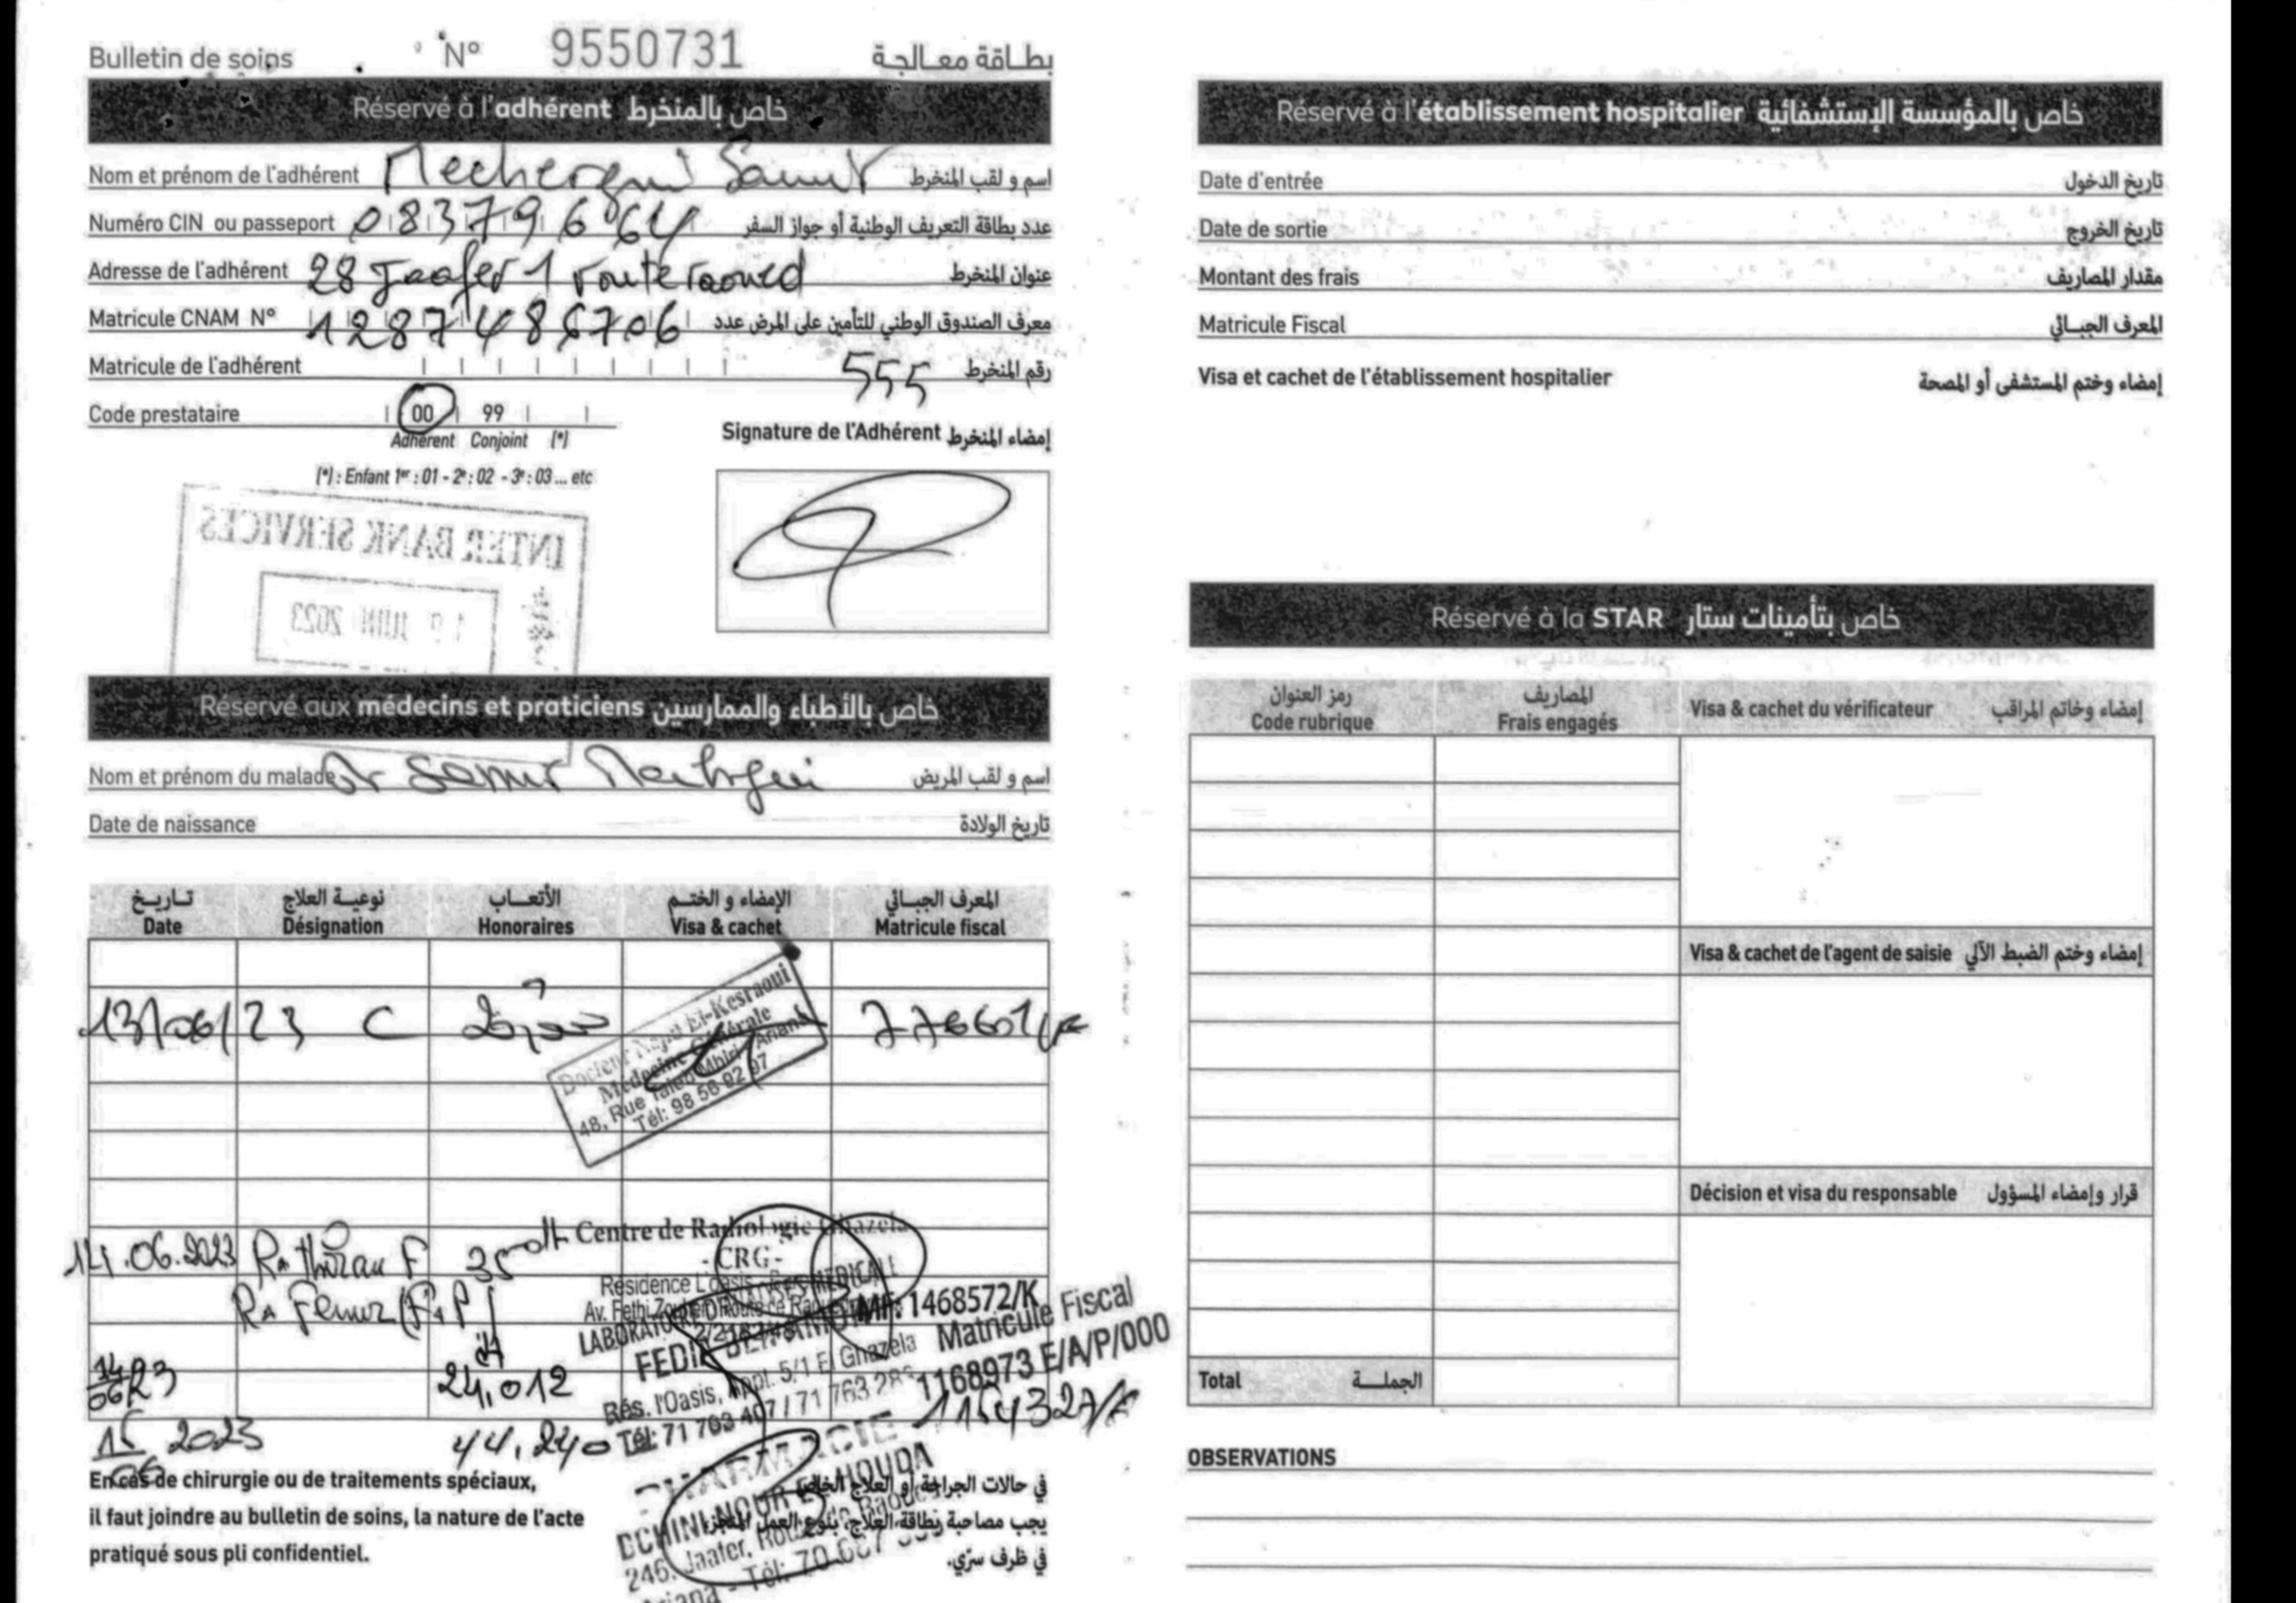 Bulletin de soins N° 9550731 بطاقة معالجة
Réservé à l'adhérent خاص بالمنخرط
Nom et prénom de l'adhérent Mechergui Samir اسم و لقب المنخرط
Numéro CIN ou passeport 08379664 عدد بطاقة التعريف الوطنية أو جواز السفر
Adresse de l'adhérent 28 Jaafer 1 route raoued عنوان المنخرط
Matricule CNAM N° 1287486706 معرف الصندوق الوطني للتأمين على المرض عدد
Matricule de l'adhérent 555 رقم المنخرط
Code prestataire 00 99
Adhérent Conjoint (*)
Signature de l'Adhérent إمضاء المنخرط
(*) : Enfant 1er : 01 - 2e : 02 - 3e : 03 ... etc
INTER BANK SERVICES
JUIN 2023
Réservé aux médecins et praticiens خاص بالأطباء والممارسين
Nom et prénom du malade Samir اسم و لقب المريض
Date de naissance تاريخ الولادة
تاريخ نوعية العلاج الأتعاب الإمضاء و الختم المعرف الجبائي
Date Désignation Honoraires Visa & cachet Matricule fiscal
13/06/23 C 776601/
Docteur El-Kesraoui
Médecine Générale
48, Rue Taieb Mhiri Ariana
Tél: 98 56 92 97
14.06.2023 Rx F 35 dt Centre de Radiologie Ghazela
-CRG-
Rx Femur (F+P) Résidence L'oasis
Av. Fethi Zouhir Route de Raoued
LABORATOIRE MF: 1468572/K
FEDIA Matricule Fiscal
14/06/23 24,012 Rés. l'Oasis, Appt. 5/1 El Ghazela 1168973 E/A/P/000
Tél: 71 763 407 / 71 763
15/06 2023 44,240 1154327/
PHARMACIE
DCHINI NOUR EL HOUDA
246, Jaafer, Route de Raoued
Ariana - Tél: 70 667
En cas de chirurgie ou de traitements spéciaux,
il faut joindre au bulletin de soins, la nature de l'acte
pratiqué sous pli confidentiel.
في حالات الجراحة أو العلاج الخاص
يجب مصاحبة بطاقة العلاج، بنوع العمل المنجز
في ظرف سرّي.
Réservé à l'établissement hospitalier خاص بالمؤسسة الإستشفائية
Date d'entrée تاريخ الدخول
Date de sortie تاريخ الخروج
Montant des frais مقدار المصاريف
Matricule Fiscal المعرف الجبائي
Visa et cachet de l'établissement hospitalier إمضاء وختم المستشفى أو المصحة
Réservé à la STAR خاص بتأمينات ستار
رمز العنوان المصاريف
Code rubrique Frais engagés Visa & cachet du vérificateur إمضاء وخاتم المراقب
Visa & cachet de l'agent de saisie إمضاء وختم الضبط الآلي
Décision et visa du responsable قرار وإمضاء المسؤول
Total الجملة
OBSERVATIONS